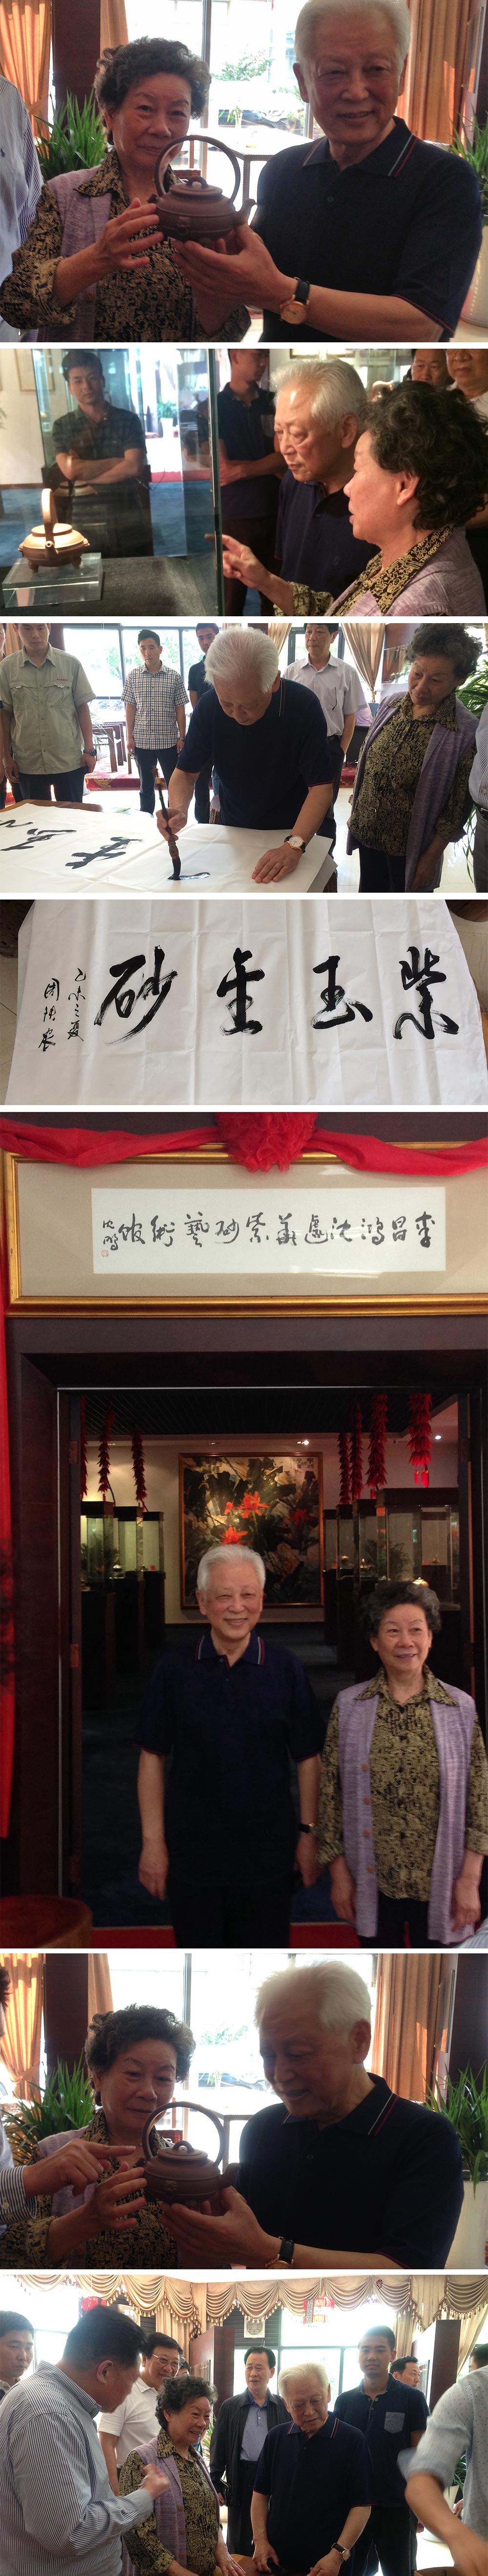 紫玉金砂
乙未之夏
周铁农
李昌鸿沈蘧華紫砂藝術馆
沈鹏